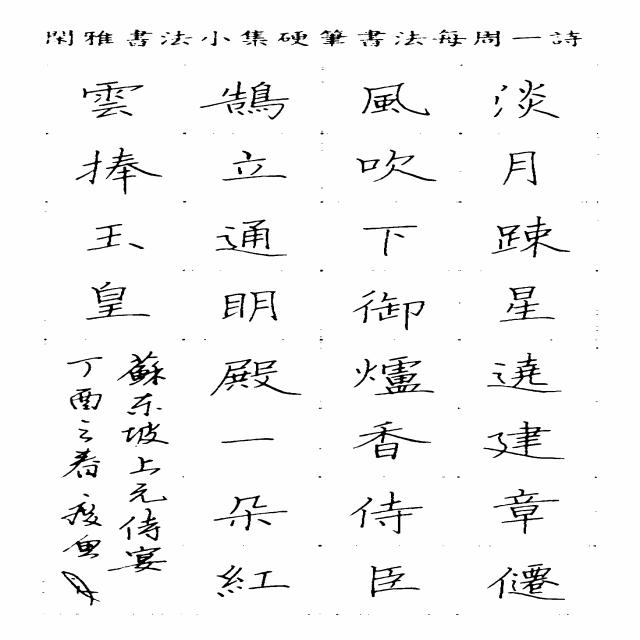 閑雅書法小集硬筆書法每周一詩
淡月踈星遶建章僊
風吹下御爐香侍臣
鵠立通明殿一朵紅
雲捧玉皇
蘇东坡上元侍宴
丁酉立春